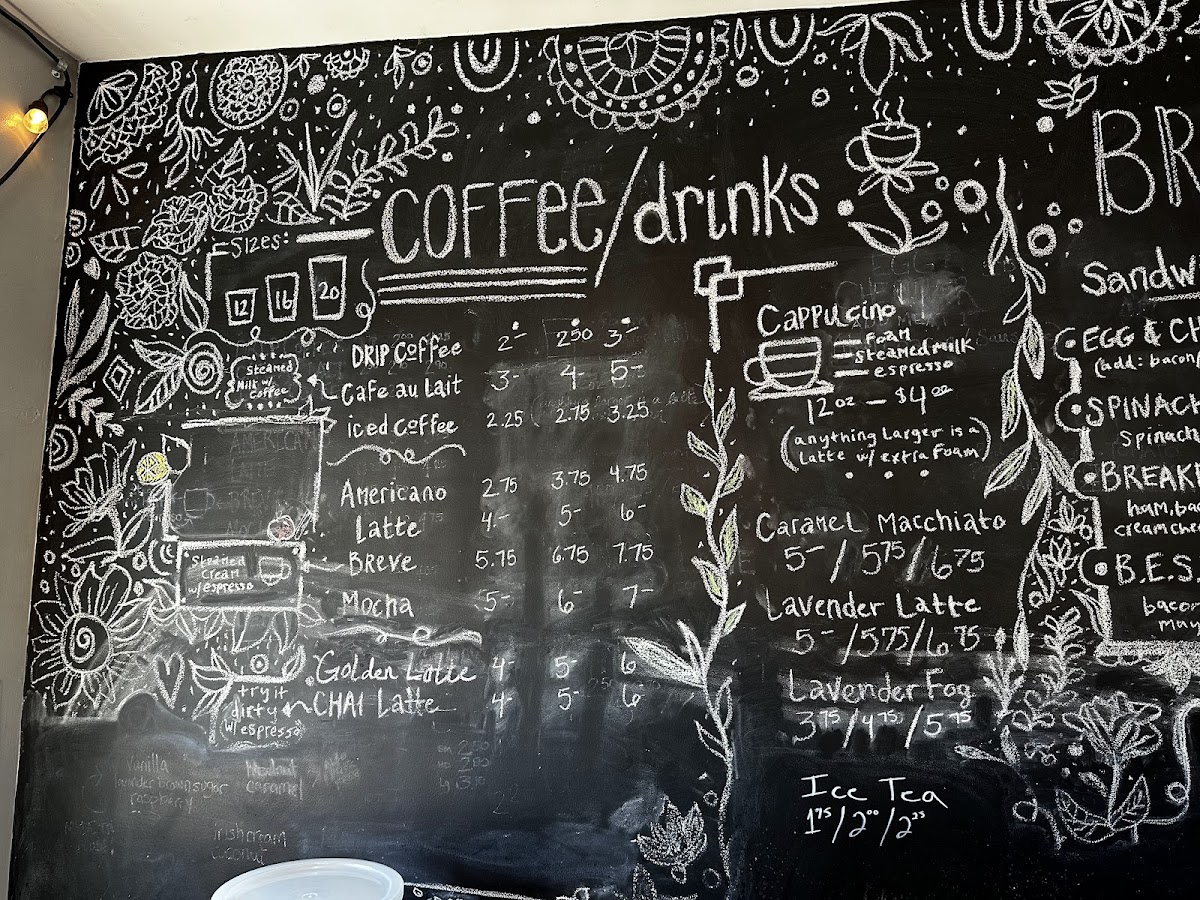 COFFEE/drinks
Sizes:
12 16 20
DRIP COFFEE 2- 2.50 3-
Steamed
Milk w/
Coffee
Cafe au Lait 3- 4- 5-
iced coffee 2.25 2.75 3.25
Americano 2.75 3.75 4.75
Latte 4- 5- 6-
Steamed
Cream
w/espresso
Breve 5.75 6.75 7.75
Mocha 5- 6- 7-
Golden Latte 4- 5- 6
try it
dirty
w/espresso
CHAI Latte 4- 5- 6
Vanilla
lavender brown sugar
raspberry
Hazelnut
caramel
irish cream
coconut
Cappucino
Foam
steamed milk
espresso
12oz — $4.00
(anything larger is a
Latte w/ extra foam)
Caramel Macchiato
5-/5.75/6.75
Lavender Latte
5-/5.75/6.75
Lavender Fog
3.75/4.75/5.75
Ice Tea
1.75/2.00/2.25
BR
Sandw
EGG & CH
(add: bacon
SPINACH
spinach
BREAKF
ham, ba
cream che
B.E.S
bacon
Mau